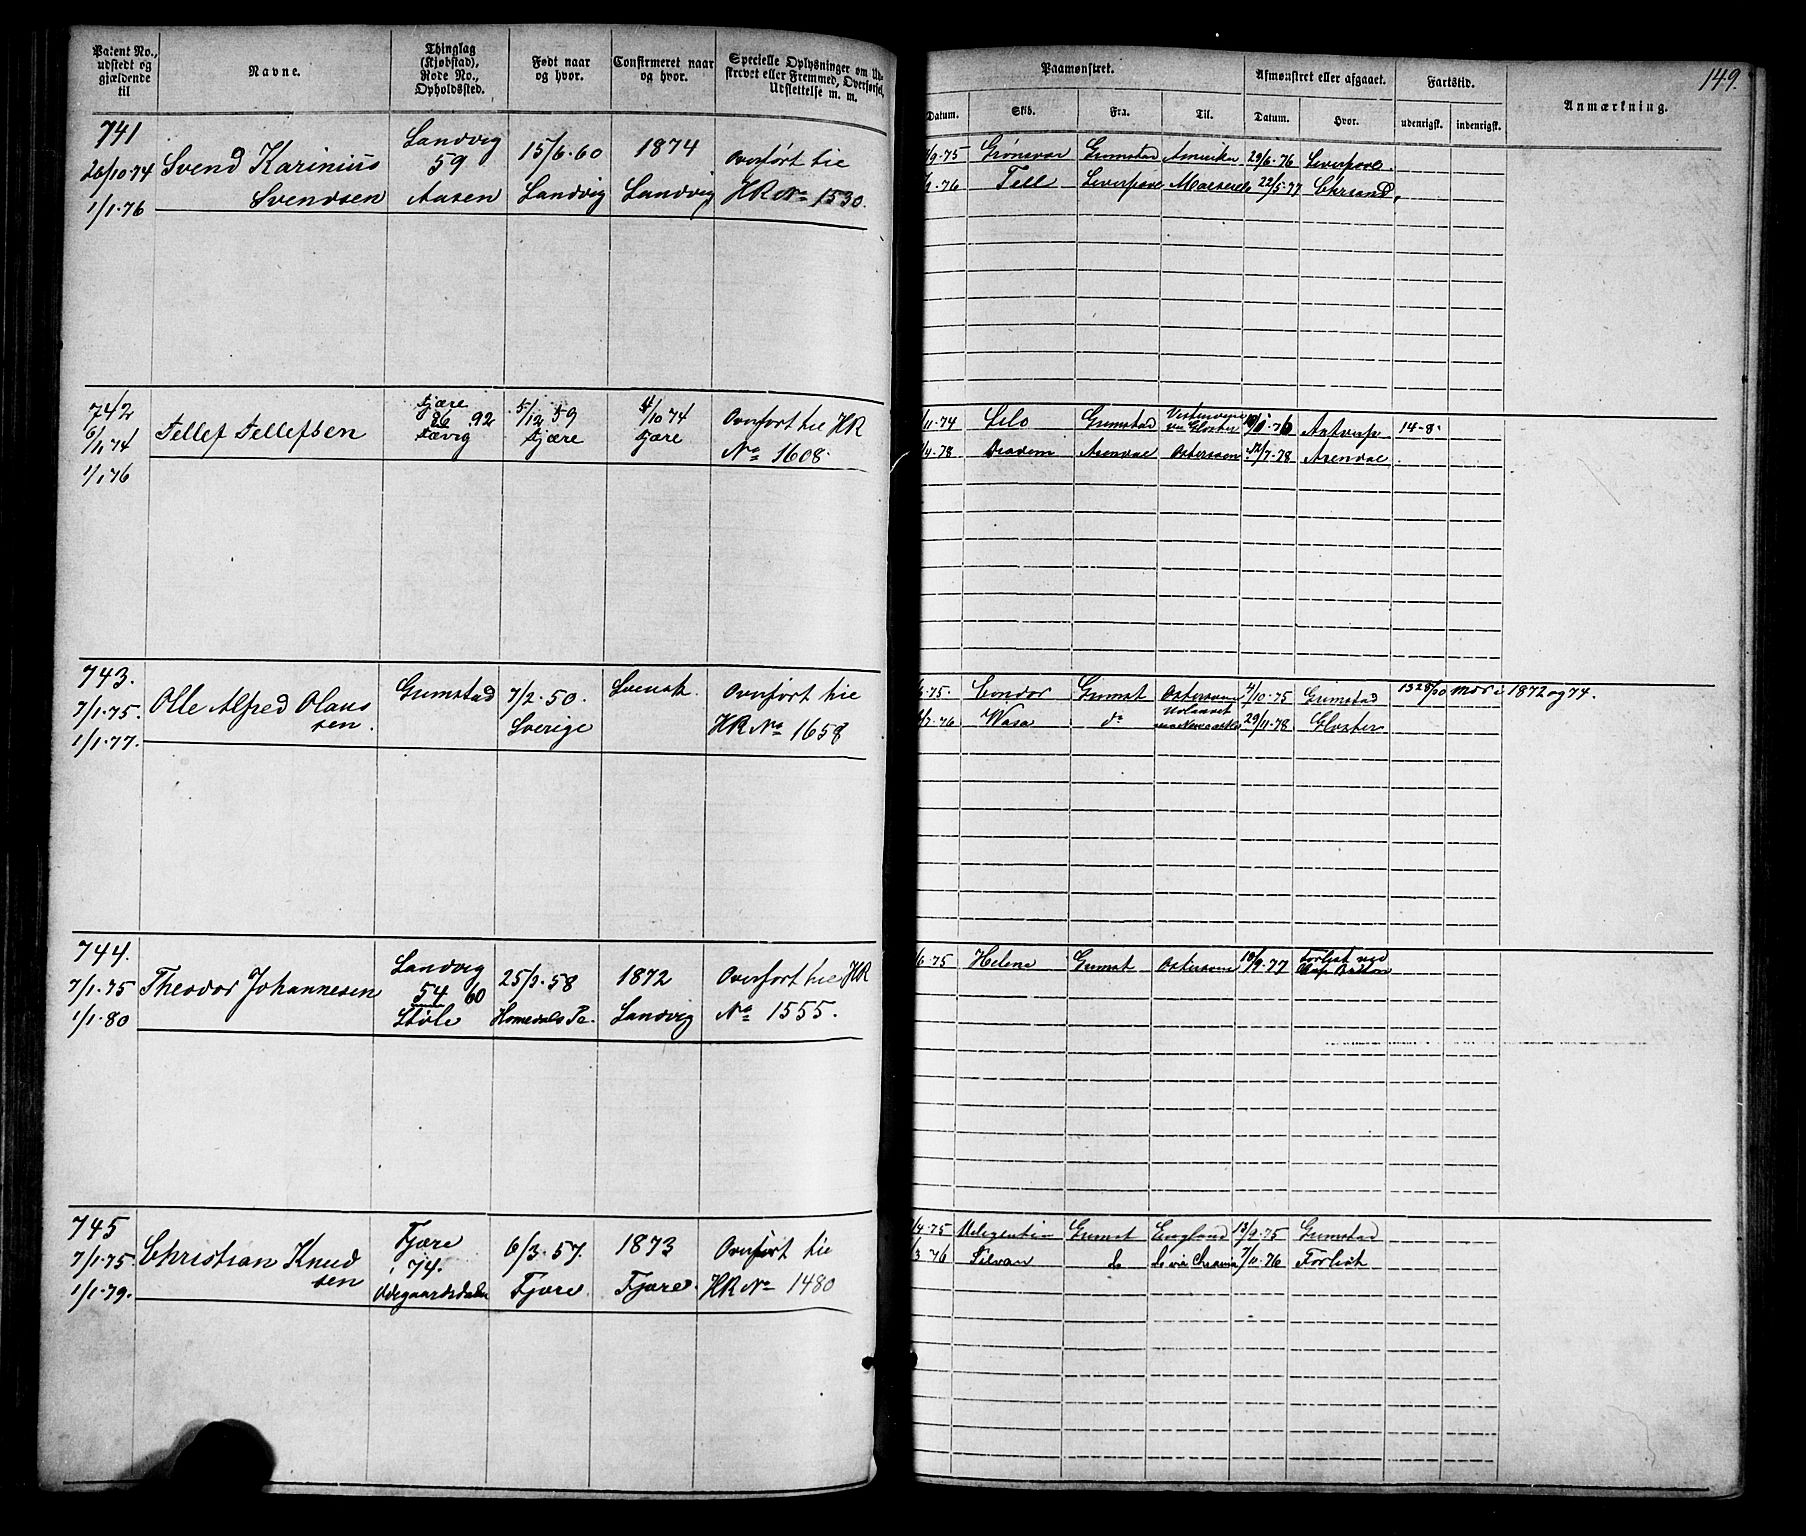 Patent No., udstedt og gjældende til
Navne.
Thinglag (Kjøbstad), Rode No., Opholdssted.
Født naar og hvor.
Confirmeret naar og hvor.
Specielle Oplysninger om Udskrevet eller Fremmed, Overførsel, Udslettelse m. m.
Paamønstret.
Datum. Skib. Fra. Til.
Afmønstret eller afgaaet.
Datum. Hvor.
Fartstid.
udenrigst. indenrigst.
Anmærkning.
149.
741
26/10 74
1/1. 76
Svend Karinius
Svendsen
Landvig
59
Aasen
15/6. 60
Landvig
1874
Landvig
Overført til
HR No 1530.
9. 75 Grønsvar Grimstad Amerika 29/6. 76 Liverpool.
76 Tell Liverpool 22/5. 77 Chrsand.
742
6/11 74
1/1 76
Tellef Tellefsen
Fjære
86 92
Fævig
5/12 59
Fjære
4/10 74
Fjære
Overført til HR
No 1608.
11. 74 Grimstad 76 Antverp 14-8.
4. 78 Arendal Østersøen /7. 78 Arendal
743.
7/1. 75.
1/1. 77.
Olle Alfred Olaus
sen.
Grimstad
7/2. 50.
Sverige
Svensk.
Overført til
HR No 1658
6. 75. Condor Grimst Østersøen /10. 75 Grimstad 1872 og 74.
7. 76 Wasa do 29/11. 78 Gloster
744.
7/1. 75
1/1. 80
Theodor Johannesen
Landvig
54 60
Støle
25/3. 58
Homedals Pr.
1872
Landvig
Overført til HR
No 1555.
6. 75 Helene Grimst Østersøen 18/9. 77 Forlist ved
Cap Breton
745
7/1. 75.
1/1. 79.
Christian Knud
sen
Fjære
74.
Ødegaardsdalen
6/3. 57.
Fjære.
1873
Fjære.
Overført til
HR No 1480
4. 75 Grimst England 13/9. 75 Grimstad
3. 76 Silvan do 7/11. 76 Forlist